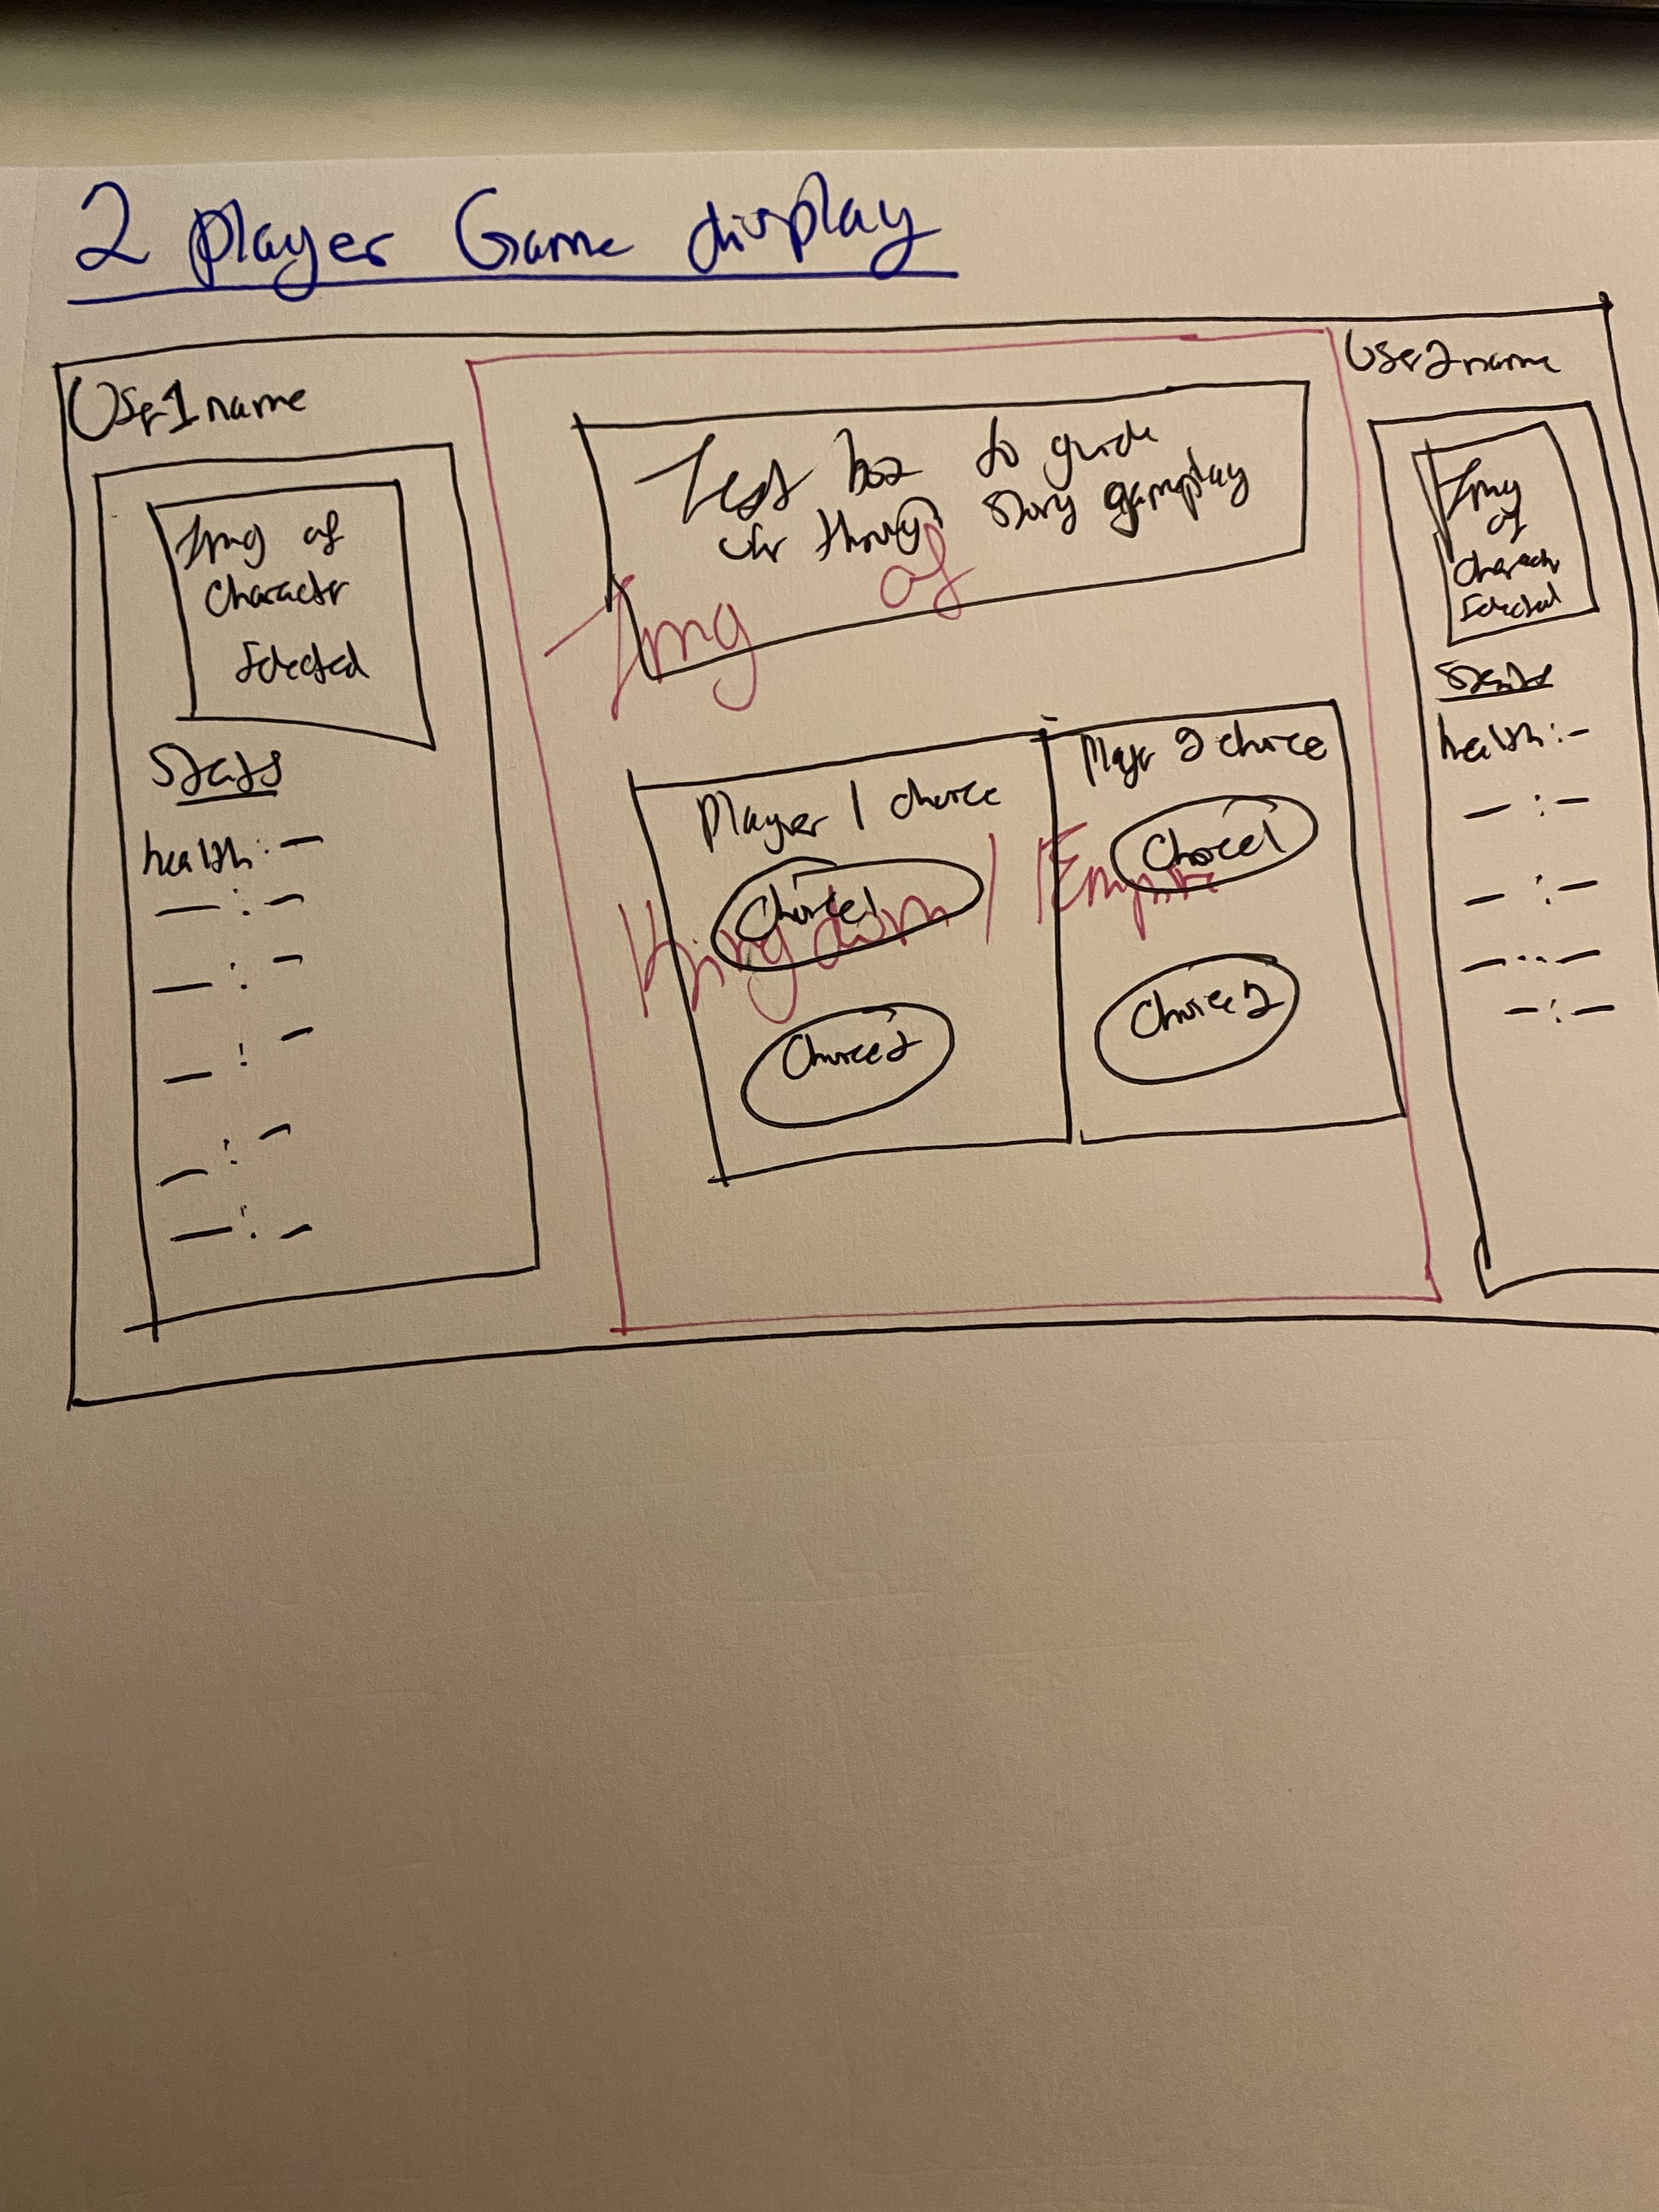 2 player Game display
User1name
Img of
Character
Selected
Stats
health: -
Text box to guide
usr through story gameplay
Img of
Kingdom / Empire
Player 1 choice
Choice1
Choice2
Player 2 choice
Choice1
Choice2
User2name
Img
of
Character
Selected
Stats
health: -